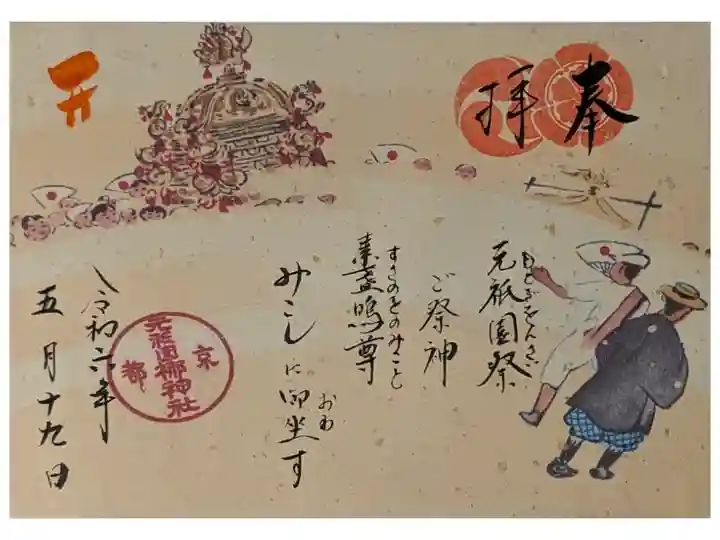 奉拝
元祇園祭
もとぎをんさい
ご祭神
素盞嗚尊
すさのをのみこと
みこしに御坐す
おわ
京都
元祇園梛神社
令和六年
五月十九日